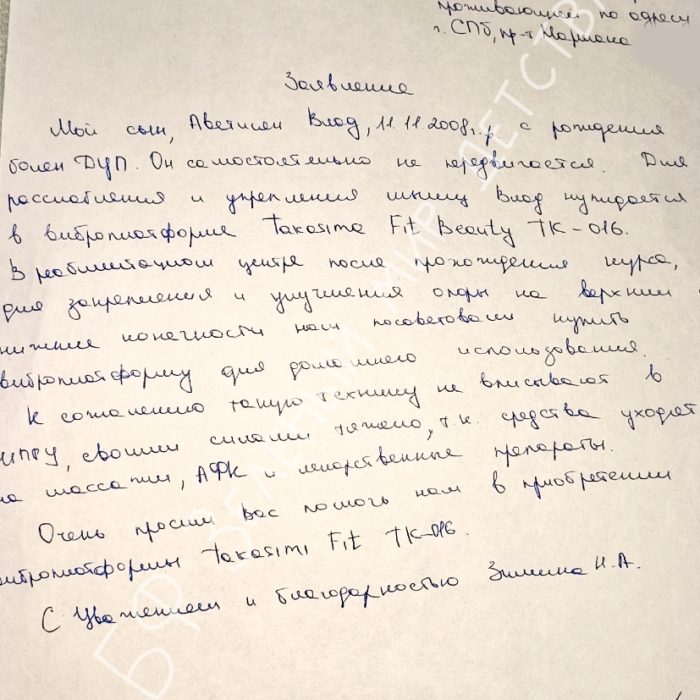 проживающей по адресу
г. СПб, пр-т Маршала
Заявление
Мой сын, Аветисян Влад, 11.11.2008г.р с рождения
болен ДЦП. Он самостоятельно не передвигается. Для
расслабления и укрепления мышц Влад нуждается
в виброплатформе Takasima Fit Beauty TK-016.
В реабилитацион центре после прохождения курса,
для закрепления и улучшения опоры на верхнии
нижние конечности нам посоветовали купить
виброплатформу для домашнего использования.
К сожалению такую технику не вписывают в
ИПРУ, своими силами тяжело, т.к. средства уходят
на массажи, АФК и лекарственные препараты.
Очень просим Вас помочь нам в приобретении
виброплатформы Takasimi Fit TK-016.
С Уважением и благодарностью Зимина Н.А.
БФ ВЕЛИКИЙ МИР ДЕТСТВА